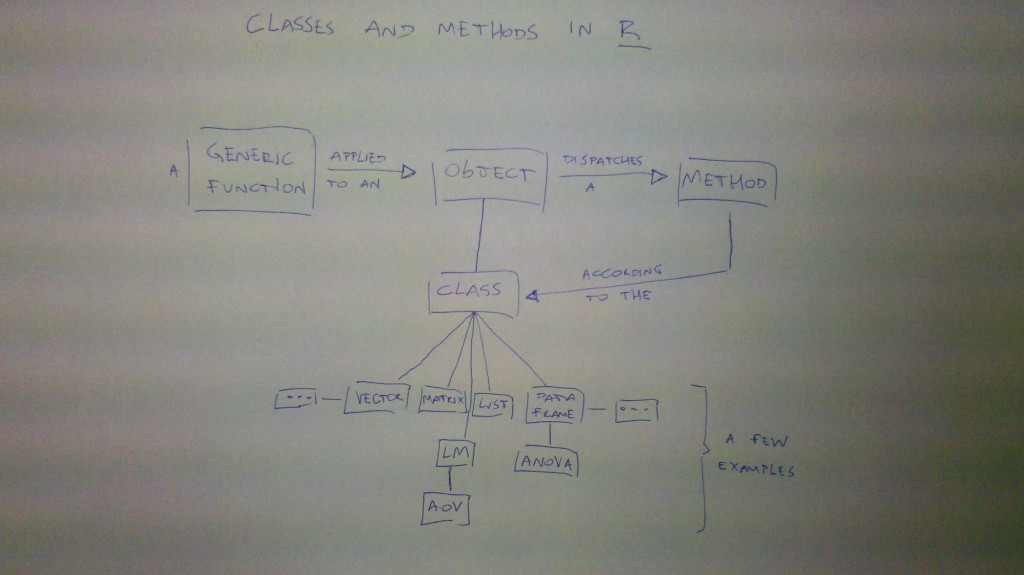 CLASSES AND METHODS IN R
A
GENERIC
FUNCTION
APPLIED
TO AN
OBJECT
DISPATCHES
A
METHOD
ACCORDING
TO THE
CLASS
...
VECTOR
MATRIX
LIST
DATA
FRAME
...
LM
ANOVA
AOV
A FEW
EXAMPLES